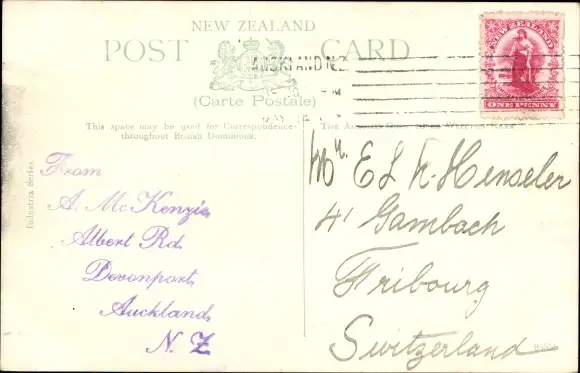 NEW ZEALAND
POST CARD
(Carte Postale)
This space may be used for Correspondence
throughout British Dominions.
AUCKLAND N.Z
NEW ZEALAND
ONE PENNY
Industria Series
From
A. McKenzie,
Albert Rd.
Devonport,
Auckland,
N. Z
Mr. E L H. Henseler
41 Gambach
Fribourg
Switzerland